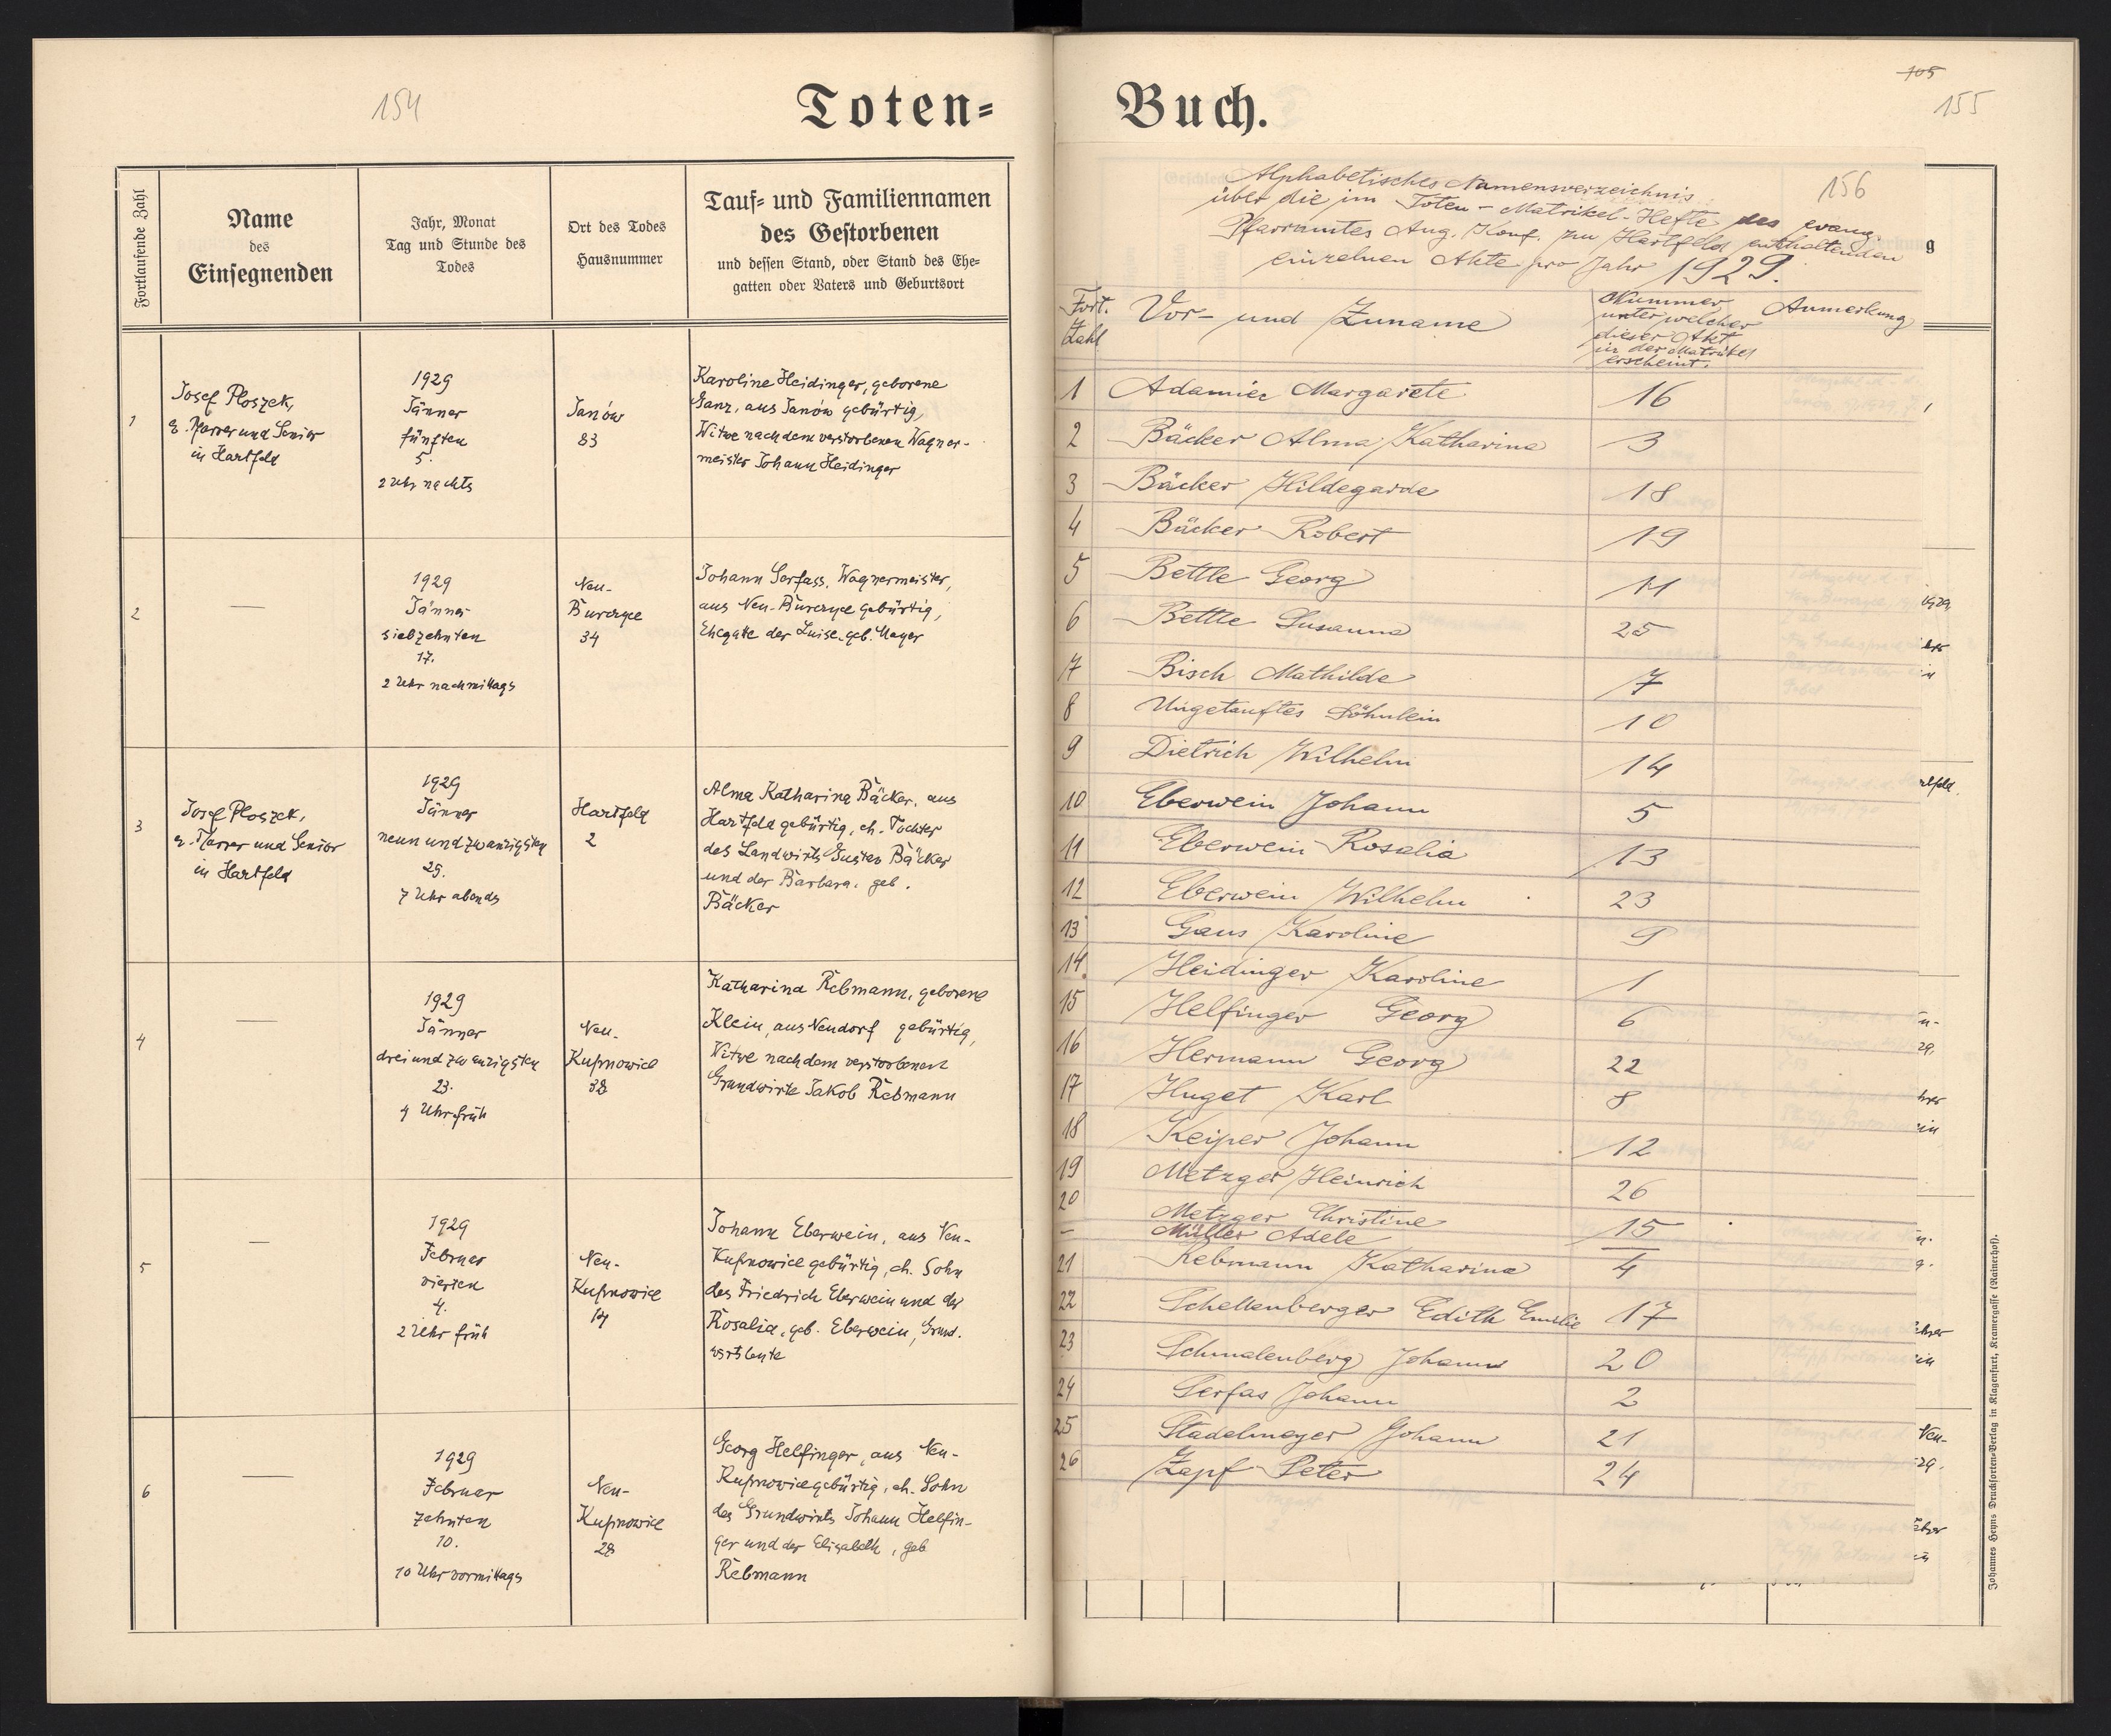 154
Toten-
Fortlaufende Zahl
Name
des
Einsegnenden
Jahr, Monat
Tag und Stunde des
Todes
Ort des Todes
Hausnummer
Tauf- und Familiennamen
des Gestorbenen
und dessen Stand, oder Stand des Ehe-
gatten oder Vaters und Geburtsort
1
Josef Ploszek,
e. Pfarrer und Senior
in Hartfeld
1929
Jänner
fünften
5.
2 Uhr nachts
Janów
83
Karoline Heidinger, geborene
Ganz, aus Janów gebürtig,
Witwe nach dem verstorbenen Wagner-
meister Johann Heidinger
2
—
1929
Jänner
siebzehnten
17.
2 Uhr nachmittags
Neu-
Burczyce
34
Johann Serfass, Wagnermeister,
aus Neu-Burczyce gebürtig,
Ehegatte der Luise, geb. Mayer
3
Josef Ploszek,
e. Pfarrer und Senior
in Hartfeld
1929
Jänner
neun und zwanzigsten
29.
7 Uhr abends
Hartfeld
2
Alma Katharina Bäcker, aus
Hartfeld gebürtig, eh. Tochter
des Landwirts Gustav Bäcker
und der Barbara, geb.
Bäcker
4
—
1929
Jänner
drei und zwanzigsten
23.
4 Uhr früh
Neu-
Kupnowice
38
Katharina Rebmann, geborene
Klein, aus Neudorf gebürtig,
Witwe nach dem verstorbenen
Grundwirte Jakob Rebmann
5
—
1929
Februar
vierten
4.
2 Uhr früh
Neu-
Kupnowice
14
Johann Eberwein, aus Neu-
Kupnowice gebürtig, eh. Sohn
des Friedrich Eberwein und der
Rosalia, geb. Eberwein, Grund-
wirtsleute
6
—
1929
Februar
zehnten
10.
10 Uhr vormittags
Neu-
Kupnowice
28
Georg Helfinger, aus Neu-
Kupnowice gebürtig, eh. Sohn
des Grundwirts Johann Helfin-
ger und der Elisabeth, geb
Rebmann
Buch.
105
155
156
Alphabetisches Namensverzeichnis
über die im Toten-Matrikel-Hefte des evang.
Pfarramtes Aug. Konf. zu Hartfeld enthaltenden
einzelnen Akte pro Jahr 1929.
Fort.
Zahl
Vor- und Zuname
Nummer
unter welcher
dieser Akt
in der Matrikel
erscheint.
Anmerkung
1 Adamiec Margarete 16
2 Bäcker Alma Katharina 3
3 Bäcker Hildegarde 18
4 Bäcker Robert 19
5 Bettle Georg 11
6 Bettle Susanna 25
7 Bisch Mathilde 7
8 Ungetauftes Söhnlein 10
9 Dietrich Wilhelm 14
10 Eberwein Johann 5
11 Eberwein Rosalia 13
12 Eberwein Wilhelm 23
13 Gans Karoline 9
14. Heidinger Karoline 1
15 Helfinger Georg 6
16 Hermann Georg 22
17 Huget Karl 8
18 Keiper Johann 12
19 Metzger Heinrich 26
20 Metzger Christine 15
– Müller Adele —
21 Rebmann Katharina 4
22 Schellenberger Edith Emilie 17
23 Schmalenberg Johann 20
24 Serfas Johann 2
25 Stadelmeyer Johann 21
26 Zapf Peter 24
Johannes Heyns Drucksorten-Verlag in Klagenfurt, Kramergasse (Rainerhof).